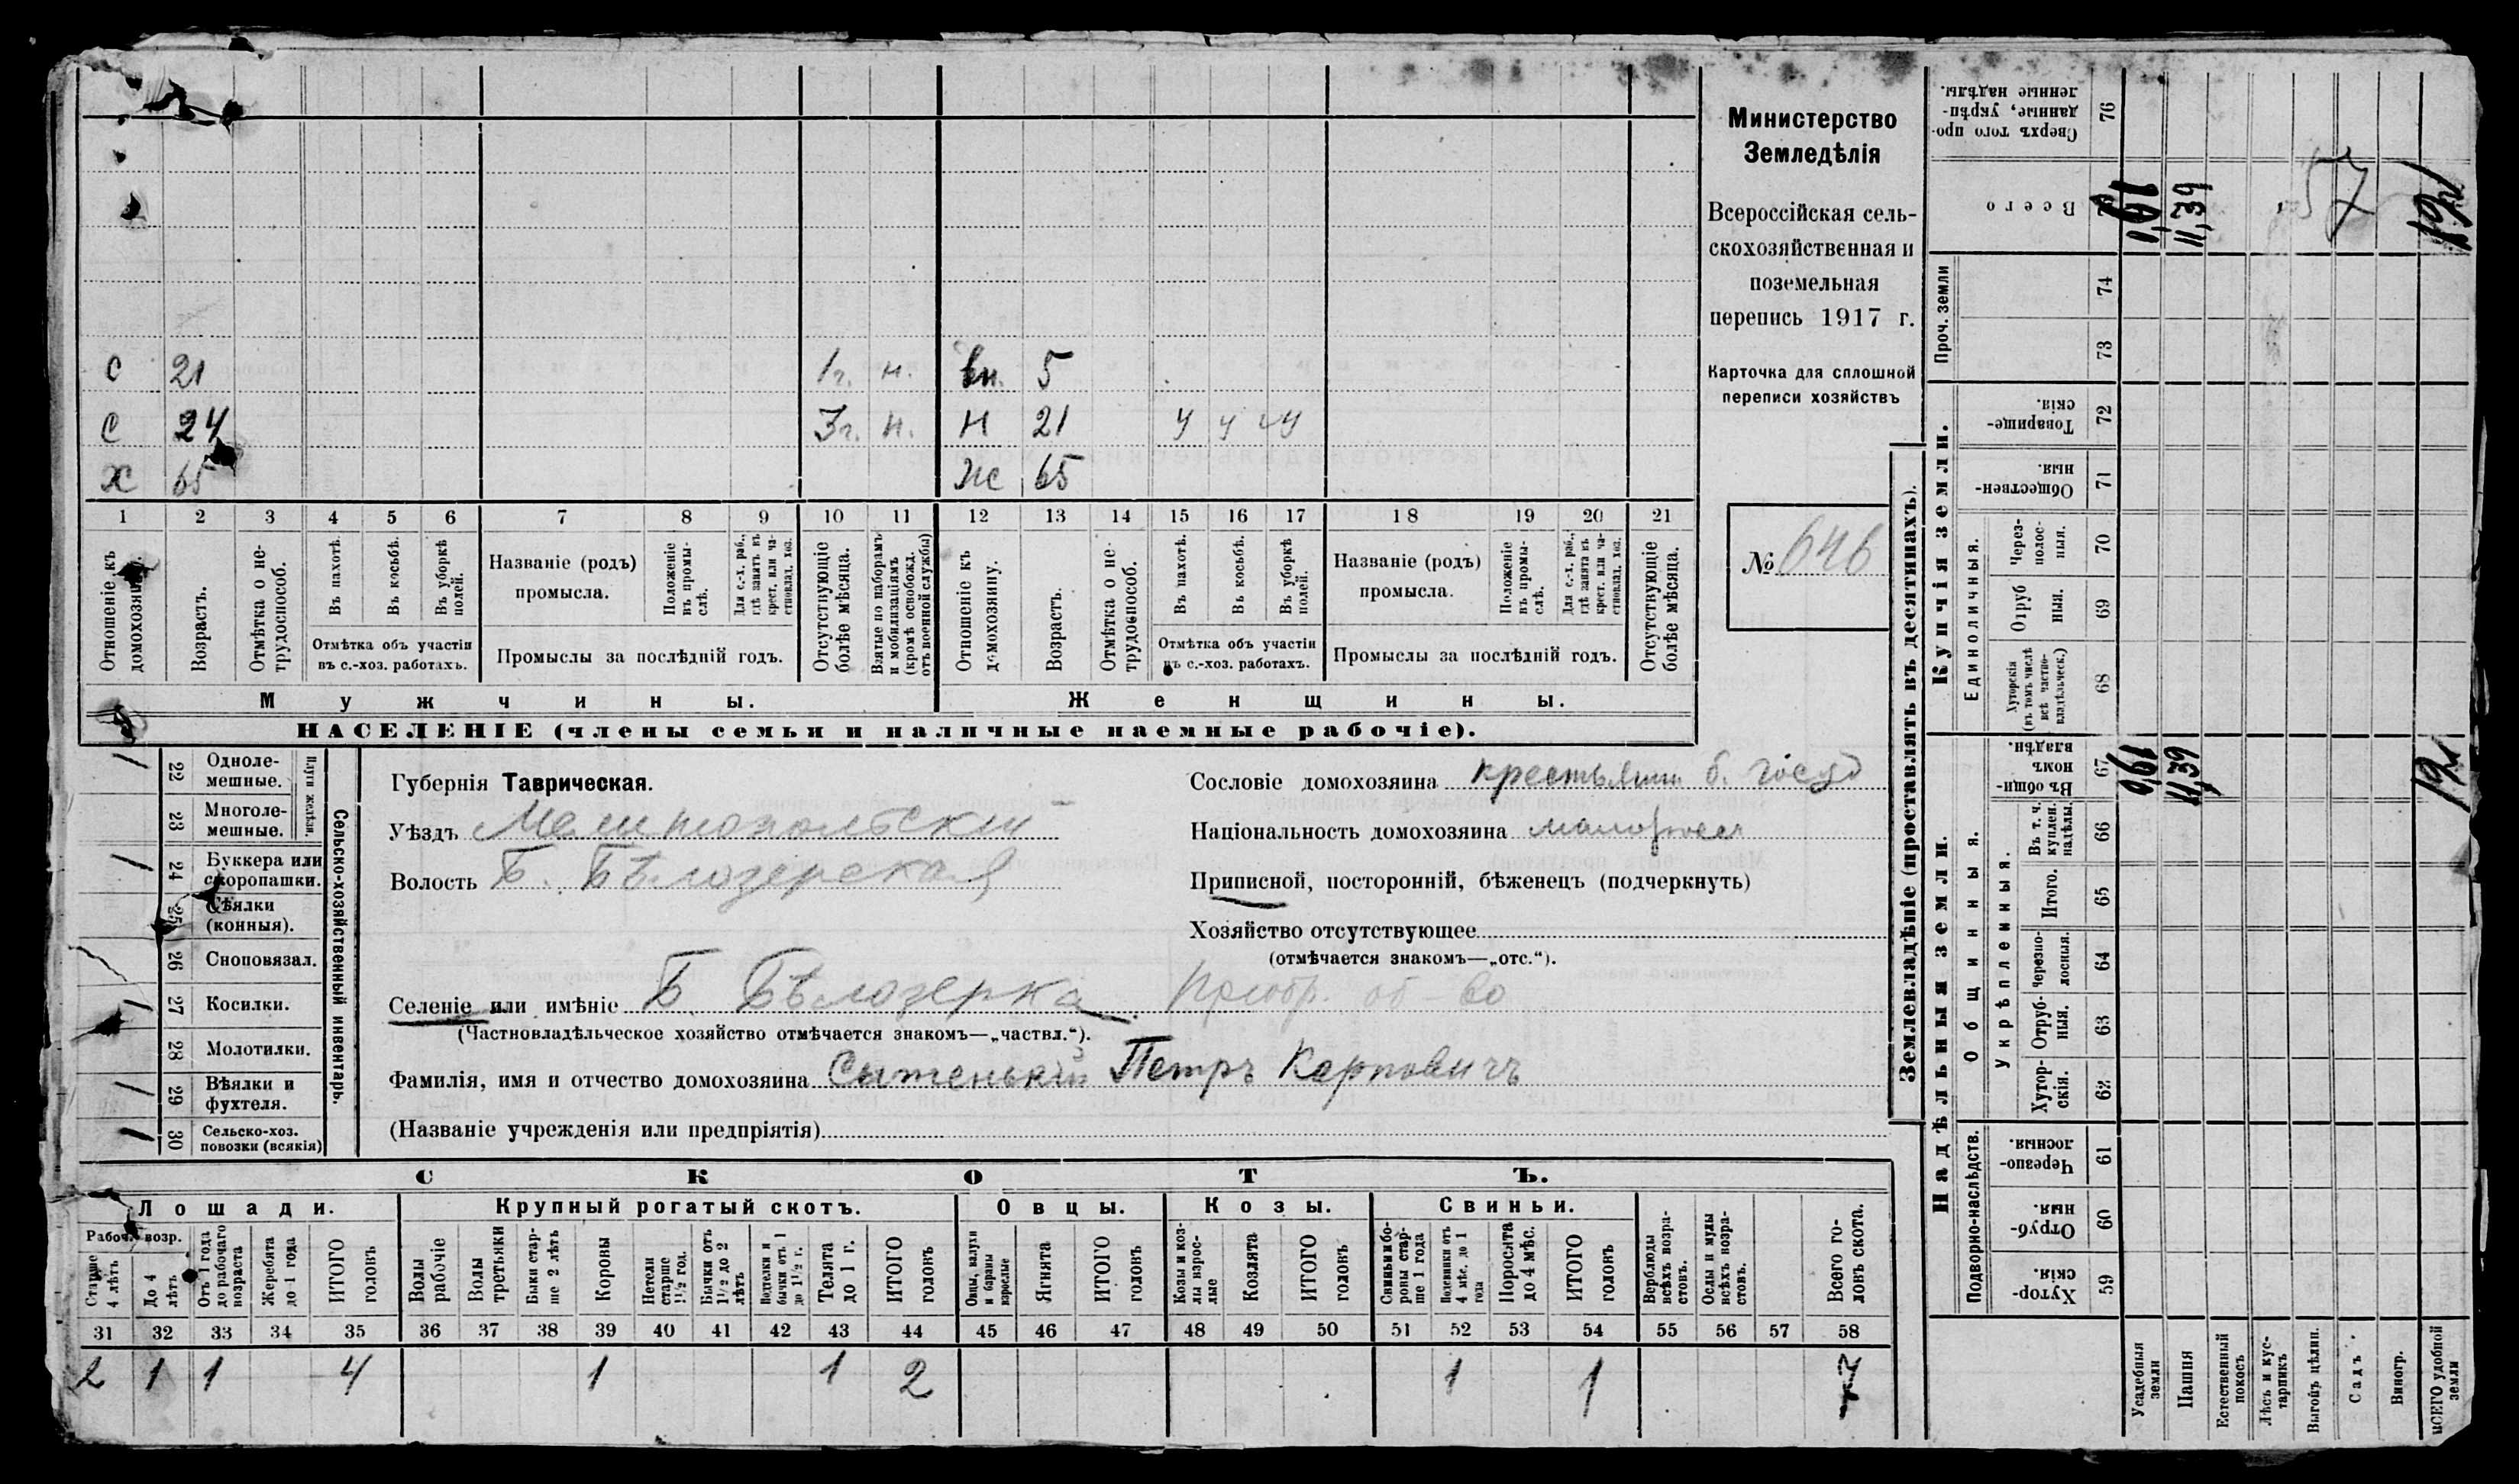 Министерство
Земледѣлія
Всероссійская сель-
скохозяйственная и
поземельная
перепись 1917 г.
Карточка для сплошной
переписи хозяйствъ
№ 646
С 21 1 г. н. вн. 5
С 24 3 г. н. н 21 у у у
Х 65 Ж 65
1 2 3 4 5 6 7 8 9 10 11 12 13 14 15 16 17 18 19 20 21
Отношеніе къ домохозяину.
Возрастъ.
Отмѣтка о не-трудоспособ.
Въ пахотѣ.
Въ косьбѣ.
Въ уборкѣ полей.
Отмѣтка объ участіи
въ с.-хоз. работахъ.
Названіе (родъ)
промысла.
Положеніе въ промы-слѣ.
Для с.-х. раб., гдѣ занятъ въ крест. или ча-стновлад. хоз.
Промыслы за послѣдній годъ.
Отсутствующіе болѣе мѣсяца.
Взятые по наборамъ и мобилизаціямъ (кромѣ освобожд. отъ военной службы)
Отношеніе къ домохозяину.
Возрастъ.
Отмѣтка о не-трудоспособ.
Въ пахотѣ.
Въ косьбѣ.
Въ уборкѣ полей.
Отмѣтка объ участіи
въ с.-хоз. работахъ.
Названіе (родъ)
промысла.
Положеніе въ промы-слѣ.
Для с.-х. раб., гдѣ занята въ крест. или ча-стновлад. хоз.
Промыслы за послѣдній годъ.
Отсутствующіе болѣе мѣсяца.
Мужчины.
Женщины.
НАСЕЛЕНІЕ (члены семьи и наличные наемные рабочіе).
Сельско-хозяйственный инвентарь.
Плуги желѣзн.
22 Одноле-мешные. 1
23 Многоле-мешные.
24 Буккера или скоропашки. 1
25 Сѣялки (конныя).
26 Сноповязал.
27 Косилки. 1
28 Молотилки.
29 Вѣялки и фухтеля. 1
30 Сельско-хоз. повозки (всякія) 1
Губернія Таврическая.
Уѣздъ Мелитопольскій
Волость Б. Бѣлозерская
Селеніе или имѣніе Б Бѣлозерка
(Частновладѣльческое хозяйство отмѣчается знакомъ—„частвл.“).
Фамилія, имя и отчество домохозяина Сытенькій Петръ Карповичъ
(Названіе учрежденія или предпріятія)
Сословіе домохозяина крестьянин б.
Національность домохозяина малоросс
Приписной, посторонній, бѣженецъ (подчеркнуть)
Хозяйство отсутствующее
(отмѣчается знакомъ—„отс.“).
об-во
СКОТЪ.
Лошади. Крупный рогатый скотъ. Овцы. Козы. Свиньи.
Рабоч. возр.
Старше 4 лѣтъ
До 4 лѣтъ
Отъ 1 года до рабочаго возраста
Жеребята до 1 года
ИТОГО головъ
Волы рабочіе
Волы третьяки
Быки стар-ше 2 лѣтъ
Коровы
Нетели старше 1½ год.
Бычки отъ 1½ до 2 лѣтъ
Подтелки и бычки отъ 1 до 1½ г.
Телята до 1 г.
ИТОГО головъ
Овцы, валухи и бараны взрослые
Ягнята
ИТОГО головъ
Козы и коз-лы взрос-лые
Козлята
ИТОГО головъ
Свиньи и бо-ровы стар-ше 1 года
Подсвинки отъ 4 мѣс. до 1 года
Поросята до 4 мѣс.
ИТОГО головъ
Верблюды всѣхъ возра-стовъ.
Ослы и мулы всѣхъ возра-стовъ.
Всего го-ловъ скота.
31 32 33 34 35 36 37 38 39 40 41 42 43 44 45 46 47 48 49 50 51 52 53 54 55 56 57 58
2 1 1 4 1 1 2 1 1 7
Землевладѣніе (проставлять въ десятинахъ).
Надѣльныя земли.
Купчія земли.
Проч. земли
Подворно-наслѣдств.
Общинныя.
Укрѣпленныя.
Единоличныя.
Сверхъ того про-данные, укрѣп-ленные надѣлы. 76
Всего 1,61 11,39 57
74
73
Товарище-скія. 72
Обществен-ныя. 71
Через-полос-ныя. 70
Отруб-ныя. 69
Хуторскія (въ томъ числѣ всѣ частно-владѣльческ.) 68
Въ общин-номъ владѣн. 67
Въ т. ч. куплен. надѣлы. 66
Итого. 65
Черезпо-лосныя. 64
Отруб-ныя. 63
Хутор-скія. 62
Черезпо-лосныя. 61
Отруб-ныя. 60
Хутор-скія. 59
Усадебныя земли
Пашня
Естественный покосъ
Лѣсъ и кус-тарникъ
Выгонъ цѣлин.
Садъ.
Виногр.
ВСЕГО удобной земли